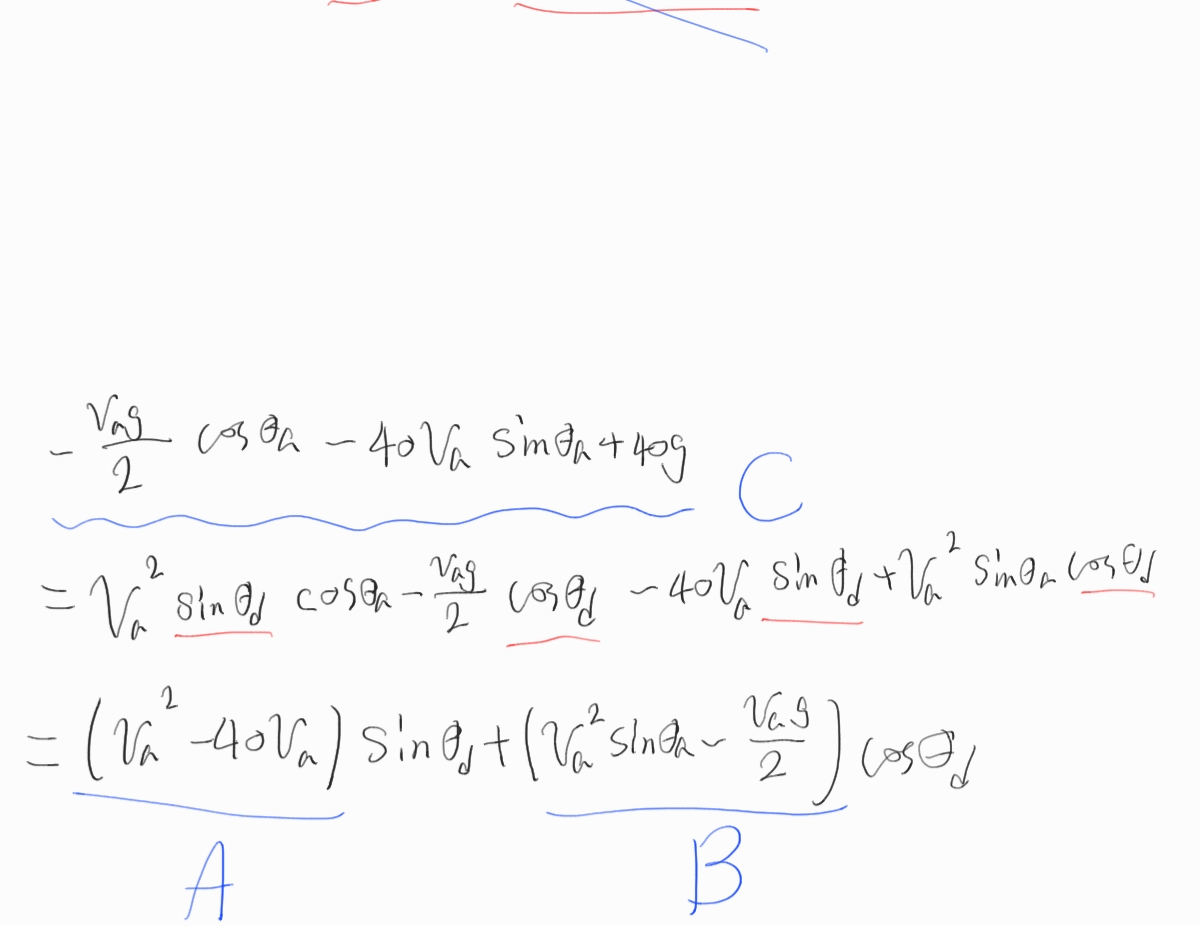 - Vag/2 cosθa - 40Va sinθa + 40g C
= Va² sinθd cosθa - Vag/2 cosθd - 40Va sinθd + Va² sinθa cosθd
= (Va² - 40Va) sinθd + (Va² sinθa - Vag/2) cosθd
A B